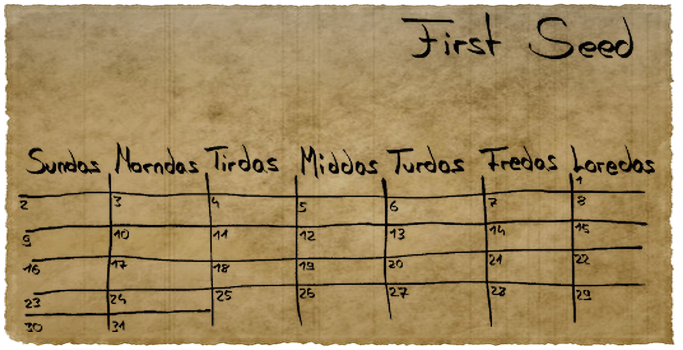 First Seed
Sundas Morndas Tirdas Middas Turdas Fredas Loredas
1
2 3 4 5 6 7 8
9 10 11 12 13 14 15
16 17 18 19 20 21 22
23 24 25 26 27 28 29
30 31